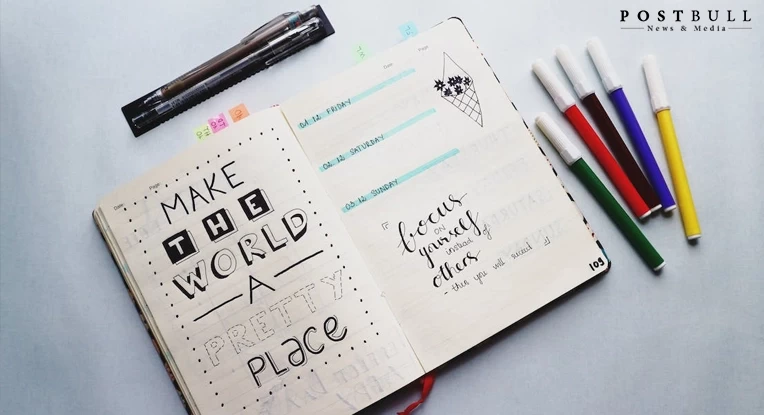 POSTBULL
News & Media
Date:
Page:
MAKE
THE
WORLD
A
PRETTY
PLACE
Date:
Page:
01.12 FRIDAY
02.12 SATURDAY
03.12 SUNDAY
focus
ON
yourself
instead of
others
- then you will succeed
109